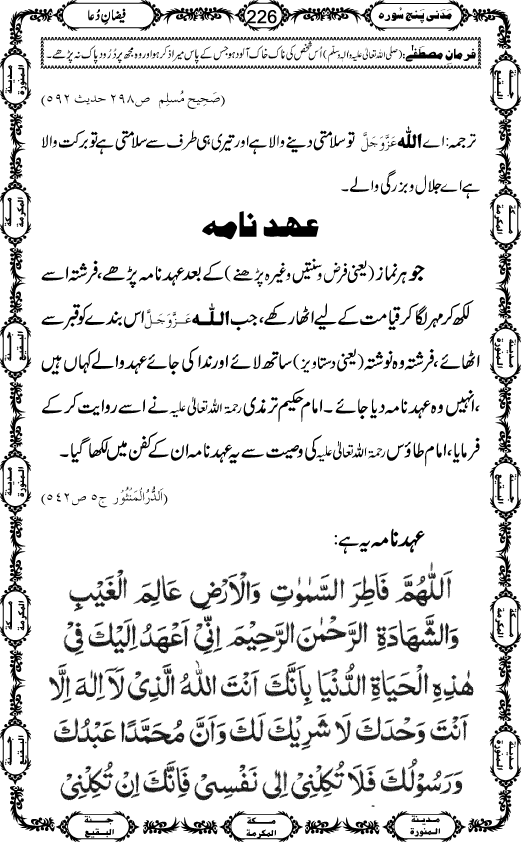 مَدَنی پنج سُورہ
226
فیضانِ دُعا
فرمانِ مصطفٰے: (صلی اللہ تعالیٰ علیہ والہ وسلّم) اُس شخص کی ناک خاک آلود ہو جس کے پاس میرا ذکر ہو اور وہ مجھ پر دُرُود پاک نہ پڑھے۔
(صَحِیح مُسلِم ص۲۹۸ حدیث ۵۹۲)
ترجمہ: اے اللہ عَزَّوَجَلَّ تو سلامتی دینے والا ہے اور تیری ہی طرف سے سلامتی ہے تو برکت والا
ہے اے جلال و بزرگی والے۔
عہد نامہ
جو ہر نماز (یعنی فرض و سنتیں وغیرہ پڑھنے) کے بعد عہد نامہ پڑھے، فرشتہ اسے
لکھ کر مہر لگا کر قیامت کے لیے اٹھا رکھے، جب اللہ عَزَّوَجَلَّ اس بندے کو قبر سے
اٹھائے، فرشتہ وہ نوشتہ (یعنی دستاویز) ساتھ لائے اور ندا کی جائے عہد والے کہاں ہیں
،انہیں وہ عہد نامہ دیا جائے۔ امام حکیم ترمذی رحمۃ اللہ تعالیٰ علیہ نے اسے روایت کر کے
فرمایا، امام طاؤس رحمۃ اللہ تعالیٰ علیہ کی وصیت سے یہ عہد نامہ ان کے کفن میں لکھا گیا۔
(اَلدُّرُّالْمَنْثُوْر ج۵ ص۵۴۲)
عہد نامہ یہ ہے:
اَللّٰهُمَّ فَاطِرَ السَّمٰوٰتِ وَالْاَرْضِ عَالِمَ الْغَيْبِ
وَالشَّهَادَةِ الرَّحْمٰنَ الرَّحِيْمَ اِنِّيْ اَعْهَدُ اِلَيْكَ فِيْ
هٰذِهِ الْحَيَاةِ الدُّنْيَا بِاَنَّكَ اَنْتَ اللّٰهُ الَّذِيْ لَآ اِلٰهَ اِلَّا
اَنْتَ وَحْدَكَ لَا شَرِيْكَ لَكَ وَاَنَّ مُحَمَّدًا عَبْدُكَ
وَرَسُوْلُكَ فَلَا تَكِلْنِيْ اِلٰى نَفْسِيْ فَاِنَّكَ اِنْ تَكِلْنِيْ
مدينة المنورة
جنة البقيع
مكة المكرمة
مكة المكرمة
جنة البقيع
مدينة المنورة
مدينة المنورة
جنة البقيع
مكة المكرمة
مكة المكرمة
جنة البقيع
مدينة المنورة
جنة البقيع
مكة المكرمة
مدينة المنورة